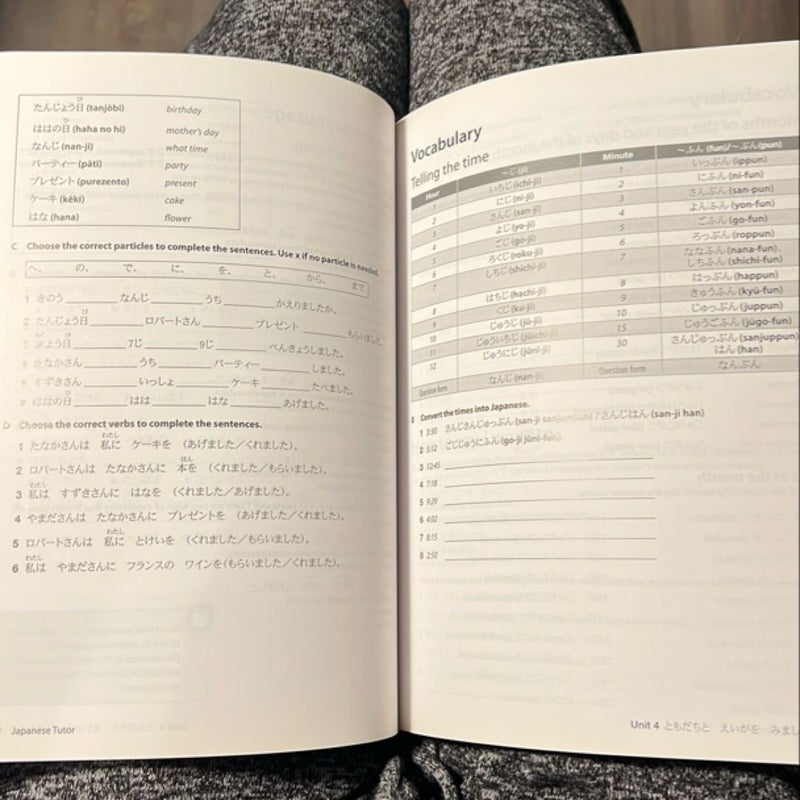 たんじょう日 (tanjōbi) birthday
ははの日 (haha no hi) mother's day
なんじ (nan-ji) what time
パーティー (pātī) party
プレゼント (purezento) present
ケーキ (kēki) cake
はな (hana) flower
C Choose the correct particles to complete the sentences. Use x if no particle is needed.
へ、 の、 で、 に、 を、 と、 から、 まで
1 きのう ________ なんじ ________ うち ________ かえりましたか。
2 たんじょう日 ________ ロバートさん ________ プレゼント ________ もらいました
3 水よう日 ________ 7じ ________ 9じ ________ べんきょうしました。
4 たなかさん ________ うち ________ パーティー ________ しました。
5 すずきさん ________ いっしょ ________ ケーキ ________ たべました。
6 ははの日 ________ はは ________ はな ________ あげました。
D Choose the correct verbs to complete the sentences.
1 たなかさんは 私に ケーキを (あげました/くれました)。
2 ロバートさんは たなかさんに 本を (くれました/もらいました)。
3 私は すずきさんに はなを (くれました/あげました)。
4 やまださんは たなかさんに プレゼントを (あげました/くれました)。
5 ロバートさんは 私に とけいを (くれました/もらいました)。
6 私は やまださんに フランスの ワインを(もらいました/くれました)。
Japanese Tutor
Vocabulary
Telling the time
Hour ～じ (ji) Minute ～ふん (fun)/～ぷん (pun)
1 いちじ (ichi-ji) 1 いっぷん (ippun)
2 にじ (ni-ji) 2 にふん (ni-fun)
3 さんじ (san-ji) 3 さんぷん (san-pun)
4 よじ (yo-ji) 4 よんふん (yon-fun)
5 ごじ (go-ji) 5 ごふん (go-fun)
6 ろくじ (roku-ji) 6 ろっぷん (roppun)
7 しちじ (shichi-ji) 7 ななふん (nana-fun).
しちふん (shichi-fun)
8 はちじ (hachi-ji) 8 はっぷん (happun)
9 くじ (ku-ji) 9 きゅうふん (kyū-fun)
10 じゅうじ (jū-ji) 10 じゅっぷん (juppun)
11 じゅういちじ (jūichi-ji) 15 じゅうごふん (jūgo-fun)
12 じゅうにじ (jūni-ji) 30 さんじゅっぷん (sanjuppun)
はん (han)
Question form なんじ (nan-ji) Question form なんぷん
E Convert the times into Japanese.
1 3:30 さんじさんじゅっぷん (san-ji sanjuppun) / さんじはん (san-ji han)
2 5:12 ごじじゅうにふん (go-ji jūni-fun)
3 12:45
4 7:18
5 9:29
6 4:02
7 8:15
8 2:50
Unit 4 ともだちと えいがを みまし